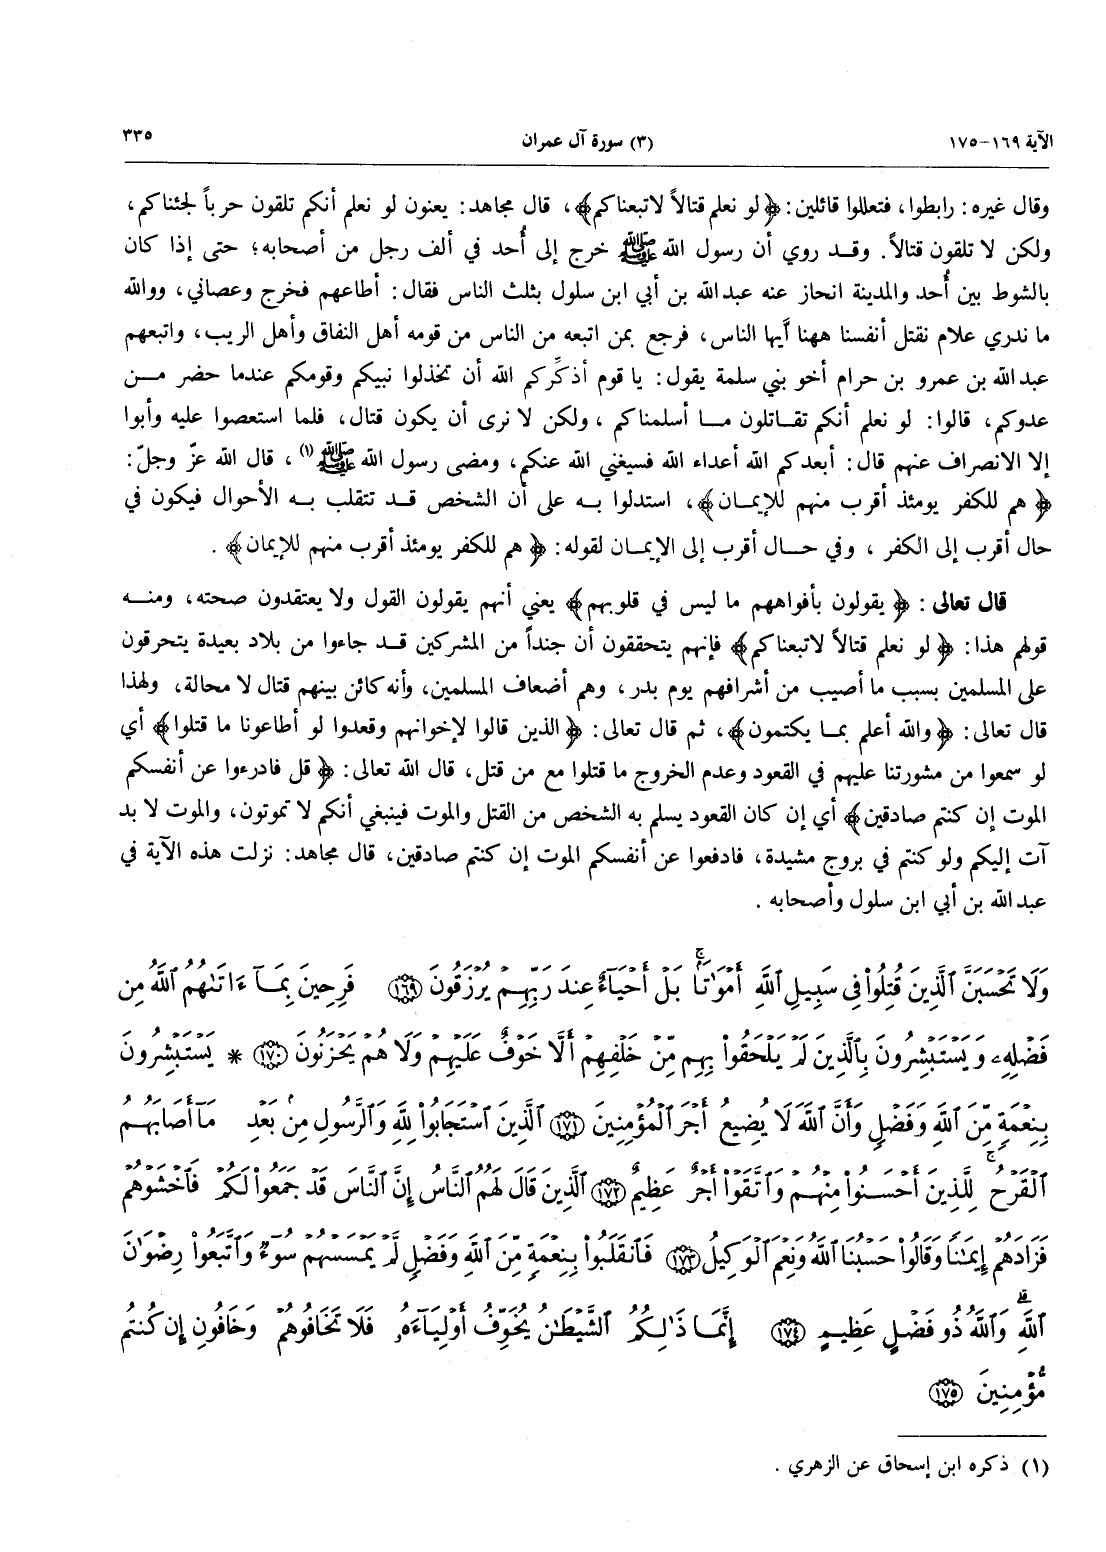 الآية ١٦٩-١٧٥ (٣) سورة آل عمران ٣٣٥
وقال غيره: رابطوا، فتعللوا قائلين: ﴿لو نعلم قتالاً لاتبعناكم﴾، قال مجاهد: يعنون لو نعلم أنكم تلقون حرباً لجئناكم،
ولكن لا تلقون قتالاً. وقد روي أن رسول الله ﷺ خرج إلى أُحد في ألف رجل من أصحابه؛ حتى إذا كان
بالشوط بين أُحد والمدينة انحاز عنه عبدالله بن أبي ابن سلول بثلث الناس فقال: أطاعهم فخرج وعصاني، ووالله
ما ندري علام نقتل أنفسنا ههنا أيها الناس، فرجع بمن اتبعه من الناس من قومه أهل النفاق وأهل الريب، واتبعهم
عبدالله بن عمرو بن حرام أخو بني سلمة يقول: يا قوم أذكِّركم الله أن تخذلوا نبيكم وقومكم عندما حضر من
عدوكم، قالوا: لو نعلم أنكم تقاتلون ما أسلمناكم، ولكن لا نرى أن يكون قتال، فلما استعصوا عليه وأبوا
إلا الانصراف عنهم قال: أبعدكم الله أعداء الله فسيغني الله عنكم، ومضى رسول الله ﷺ (١)، قال الله عزّ وجلّ:
﴿هم للكفر يومئذ أقرب منهم للإيمان﴾، استدلوا به على أن الشخص قد تتقلب به الأحوال فيكون في
حال أقرب إلى الكفر، وفي حال أقرب إلى الإيمان لقوله: ﴿هم للكفر يومئذ أقرب منهم للإيمان﴾.
قال تعالى: ﴿يقولون بأفواههم ما ليس في قلوبهم﴾ يعني أنهم يقولون القول ولا يعتقدون صحته، ومنه
قولهم هذا: ﴿لو نعلم قتالاً لاتبعناكم﴾ فإنهم يتحققون أن جنداً من المشركين قد جاءوا من بلاد بعيدة يتحرقون
على المسلمين بسبب ما أصيب من أشرافهم يوم بدر، وهم أضعاف المسلمين، وأنه كائن بينهم قتال لا محالة، ولهذا
قال تعالى: ﴿والله أعلم بما يكتمون﴾، ثم قال تعالى: ﴿الذين قالوا لإخوانهم وقعدوا لو أطاعونا ما قتلوا﴾ أي
لو سمعوا من مشورتنا عليهم في القعود وعدم الخروج ما قتلوا مع من قتل، قال الله تعالى: ﴿قل فادرءوا عن أنفسكم
الموت إن كنتم صادقين﴾ أي إن كان القعود يسلم به الشخص من القتل والموت فينبغي أنكم لا تموتون، والموت لا بد
آت إليكم ولو كنتم في بروج مشيدة، فادفعوا عن أنفسكم الموت إن كنتم صادقين، قال مجاهد: نزلت هذه الآية في
عبدالله بن أبي ابن سلول وأصحابه.
وَلَا تَحْسَبَنَّ ٱلَّذِينَ قُتِلُوا۟ فِى سَبِيلِ ٱللَّهِ أَمْوَٰتًۢا ۚ بَلْ أَحْيَآءٌ عِندَ رَبِّهِمْ يُرْزَقُونَ ﴿١٦٩﴾ فَرِحِينَ بِمَآ ءَاتَىٰهُمُ ٱللَّهُ مِن
فَضْلِهِۦ وَيَسْتَبْشِرُونَ بِٱلَّذِينَ لَمْ يَلْحَقُوا۟ بِهِم مِّنْ خَلْفِهِمْ أَلَّا خَوْفٌ عَلَيْهِمْ وَلَا هُمْ يَحْزَنُونَ ﴿١٧٠﴾ * يَسْتَبْشِرُونَ
بِنِعْمَةٍ مِّنَ ٱللَّهِ وَفَضْلٍ وَأَنَّ ٱللَّهَ لَا يُضِيعُ أَجْرَ ٱلْمُؤْمِنِينَ ﴿١٧١﴾ ٱلَّذِينَ ٱسْتَجَابُوا۟ لِلَّهِ وَٱلرَّسُولِ مِنۢ بَعْدِ مَآ أَصَابَهُمُ
ٱلْقَرْحُ ۚ لِلَّذِينَ أَحْسَنُوا۟ مِنْهُمْ وَٱتَّقَوْا۟ أَجْرٌ عَظِيمٌ ﴿١٧٢﴾ ٱلَّذِينَ قَالَ لَهُمُ ٱلنَّاسُ إِنَّ ٱلنَّاسَ قَدْ جَمَعُوا۟ لَكُمْ فَٱخْشَوْهُمْ
فَزَادَهُمْ إِيمَٰنًا وَقَالُوا۟ حَسْبُنَا ٱللَّهُ وَنِعْمَ ٱلْوَكِيلُ ﴿١٧٣﴾ فَٱنقَلَبُوا۟ بِنِعْمَةٍ مِّنَ ٱللَّهِ وَفَضْلٍ لَّمْ يَمْسَسْهُمْ سُوٓءٌ وَٱتَّبَعُوا۟ رِضْوَٰنَ
ٱللَّهِ ۗ وَٱللَّهُ ذُو فَضْلٍ عَظِيمٍ ﴿١٧٤﴾ إِنَّمَا ذَٰلِكُمُ ٱلشَّيْطَٰنُ يُخَوِّفُ أَوْلِيَآءَهُۥ فَلَا تَخَافُوهُمْ وَخَافُونِ إِن كُنتُم
مُّؤْمِنِينَ ﴿١٧٥﴾
(١) ذكره ابن إسحاق عن الزهري.